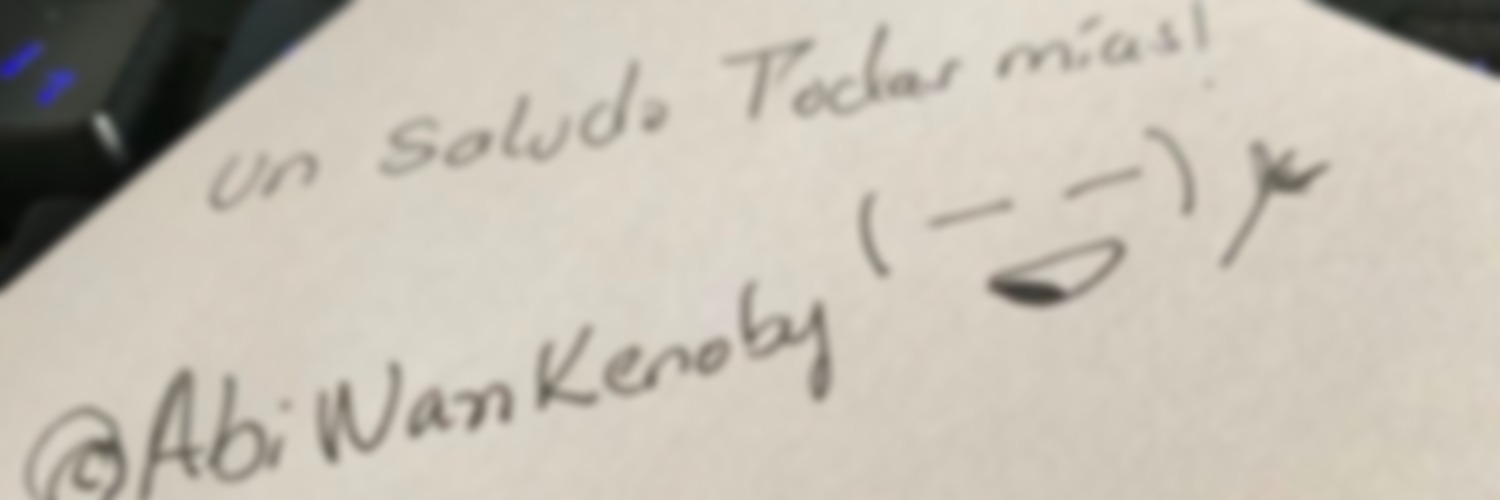 Un Saludo Todas mías!
@AbiWanKenoby